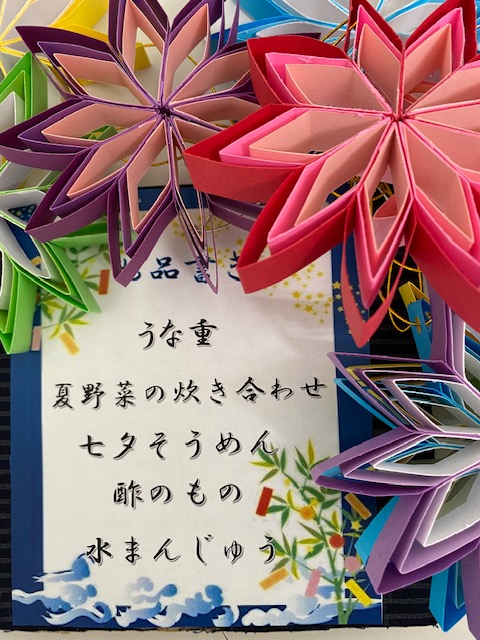 お品書き
うな重
夏野菜の炊き合わせ
七夕そうめん
酢のもの
水まんじゅう